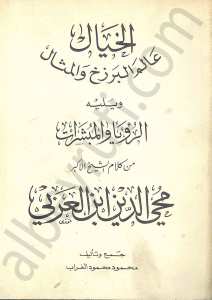 الخيال
عالم البرزخ والمثال
ويليه
الرؤيا والمبشرات
من كلام الشيخ الأكبر
محيي الدين ابن العربي
جمع وتأليف
محمود محمود الغراب